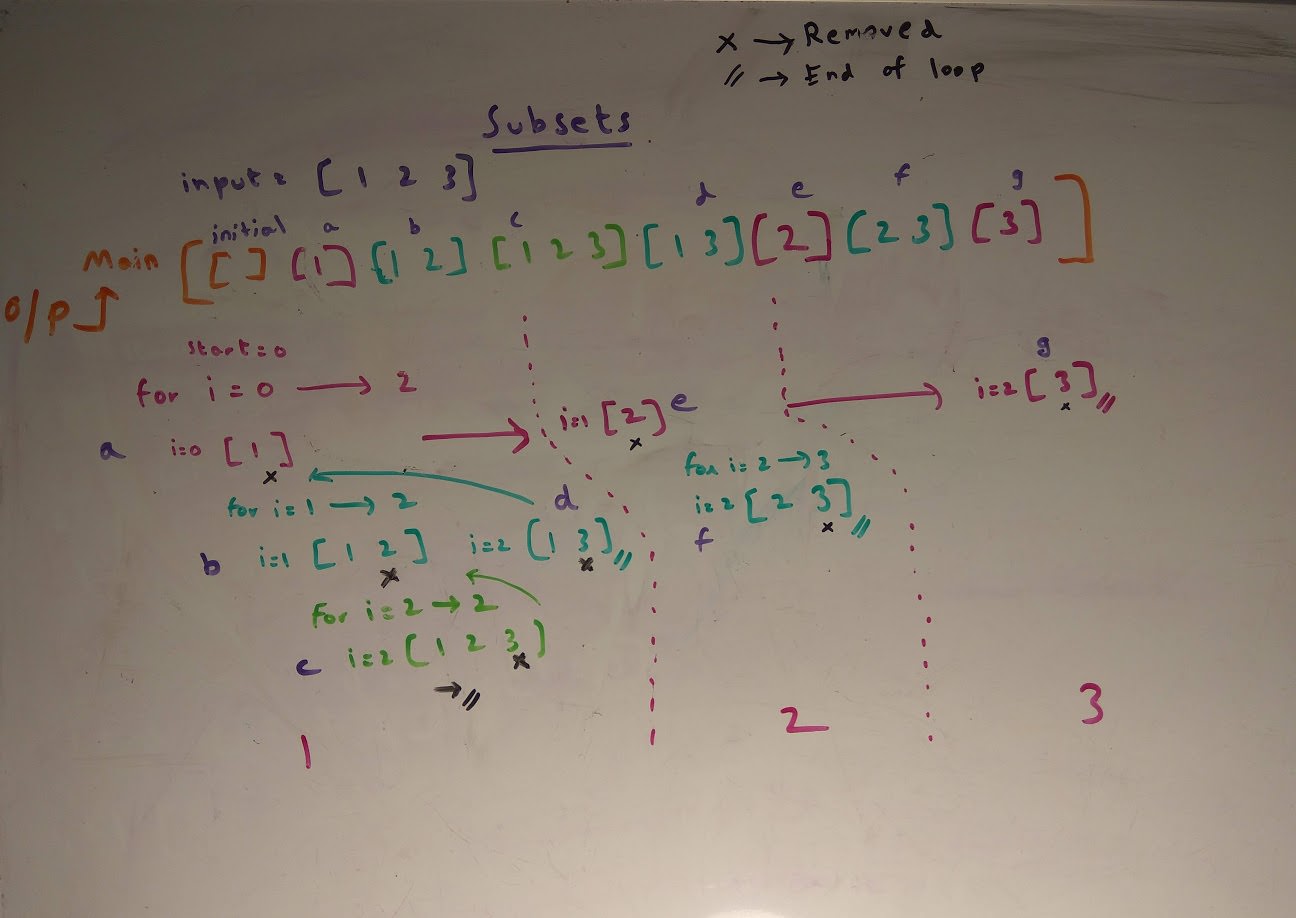 x → Removed
// → End of loop
Subsets
input = [ 1 2 3 ]
initial a b c d e f g
Main [ [ ] [1] [1 2] [1 2 3] [1 3] [2] [2 3] [3] ]
o/p
start=0
for i = 0 → 2
g
i=2 [ 3 ] //
x
i=1 [ 2 ] e
x
a i=0 [ 1 ]
x
for i = 2 → 3
for i = 1 → 2
d
i=2 [ 2 3 ] //
x
f
b i=1 [ 1 2 ] i=2 [ 1 3 ] //
x x
for i = 2 → 2
c i=2 [ 1 2 3 ]
x
→ //
1 2 3